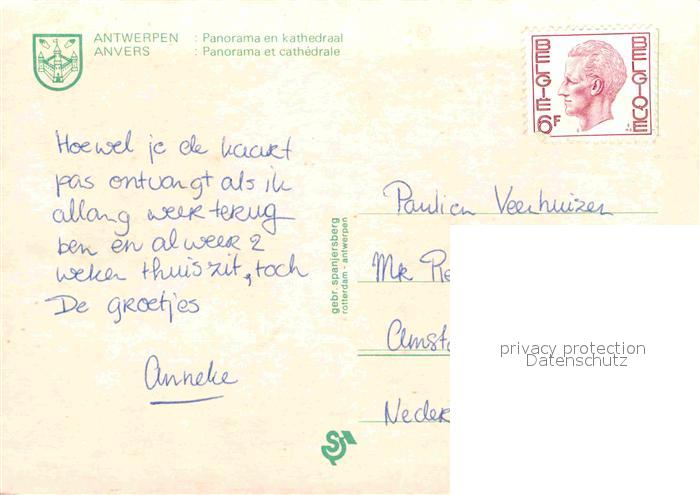 ANTWERPEN : Panorama en kathedraal
ANVERS : Panorama et cathédrale
BELGIË BELGIQUE
6F
Hoewel je de kaart
pas ontvangt als ik
allang weer terug
ben en al weer 2
weken thuis zit, toch
De groetjes
Anneke
gebr. spanjersberg
rotterdam - antwerpen
Paulien Veerhuizen
Mr Re
Amst
Neder
privacy protection
Datenschutz